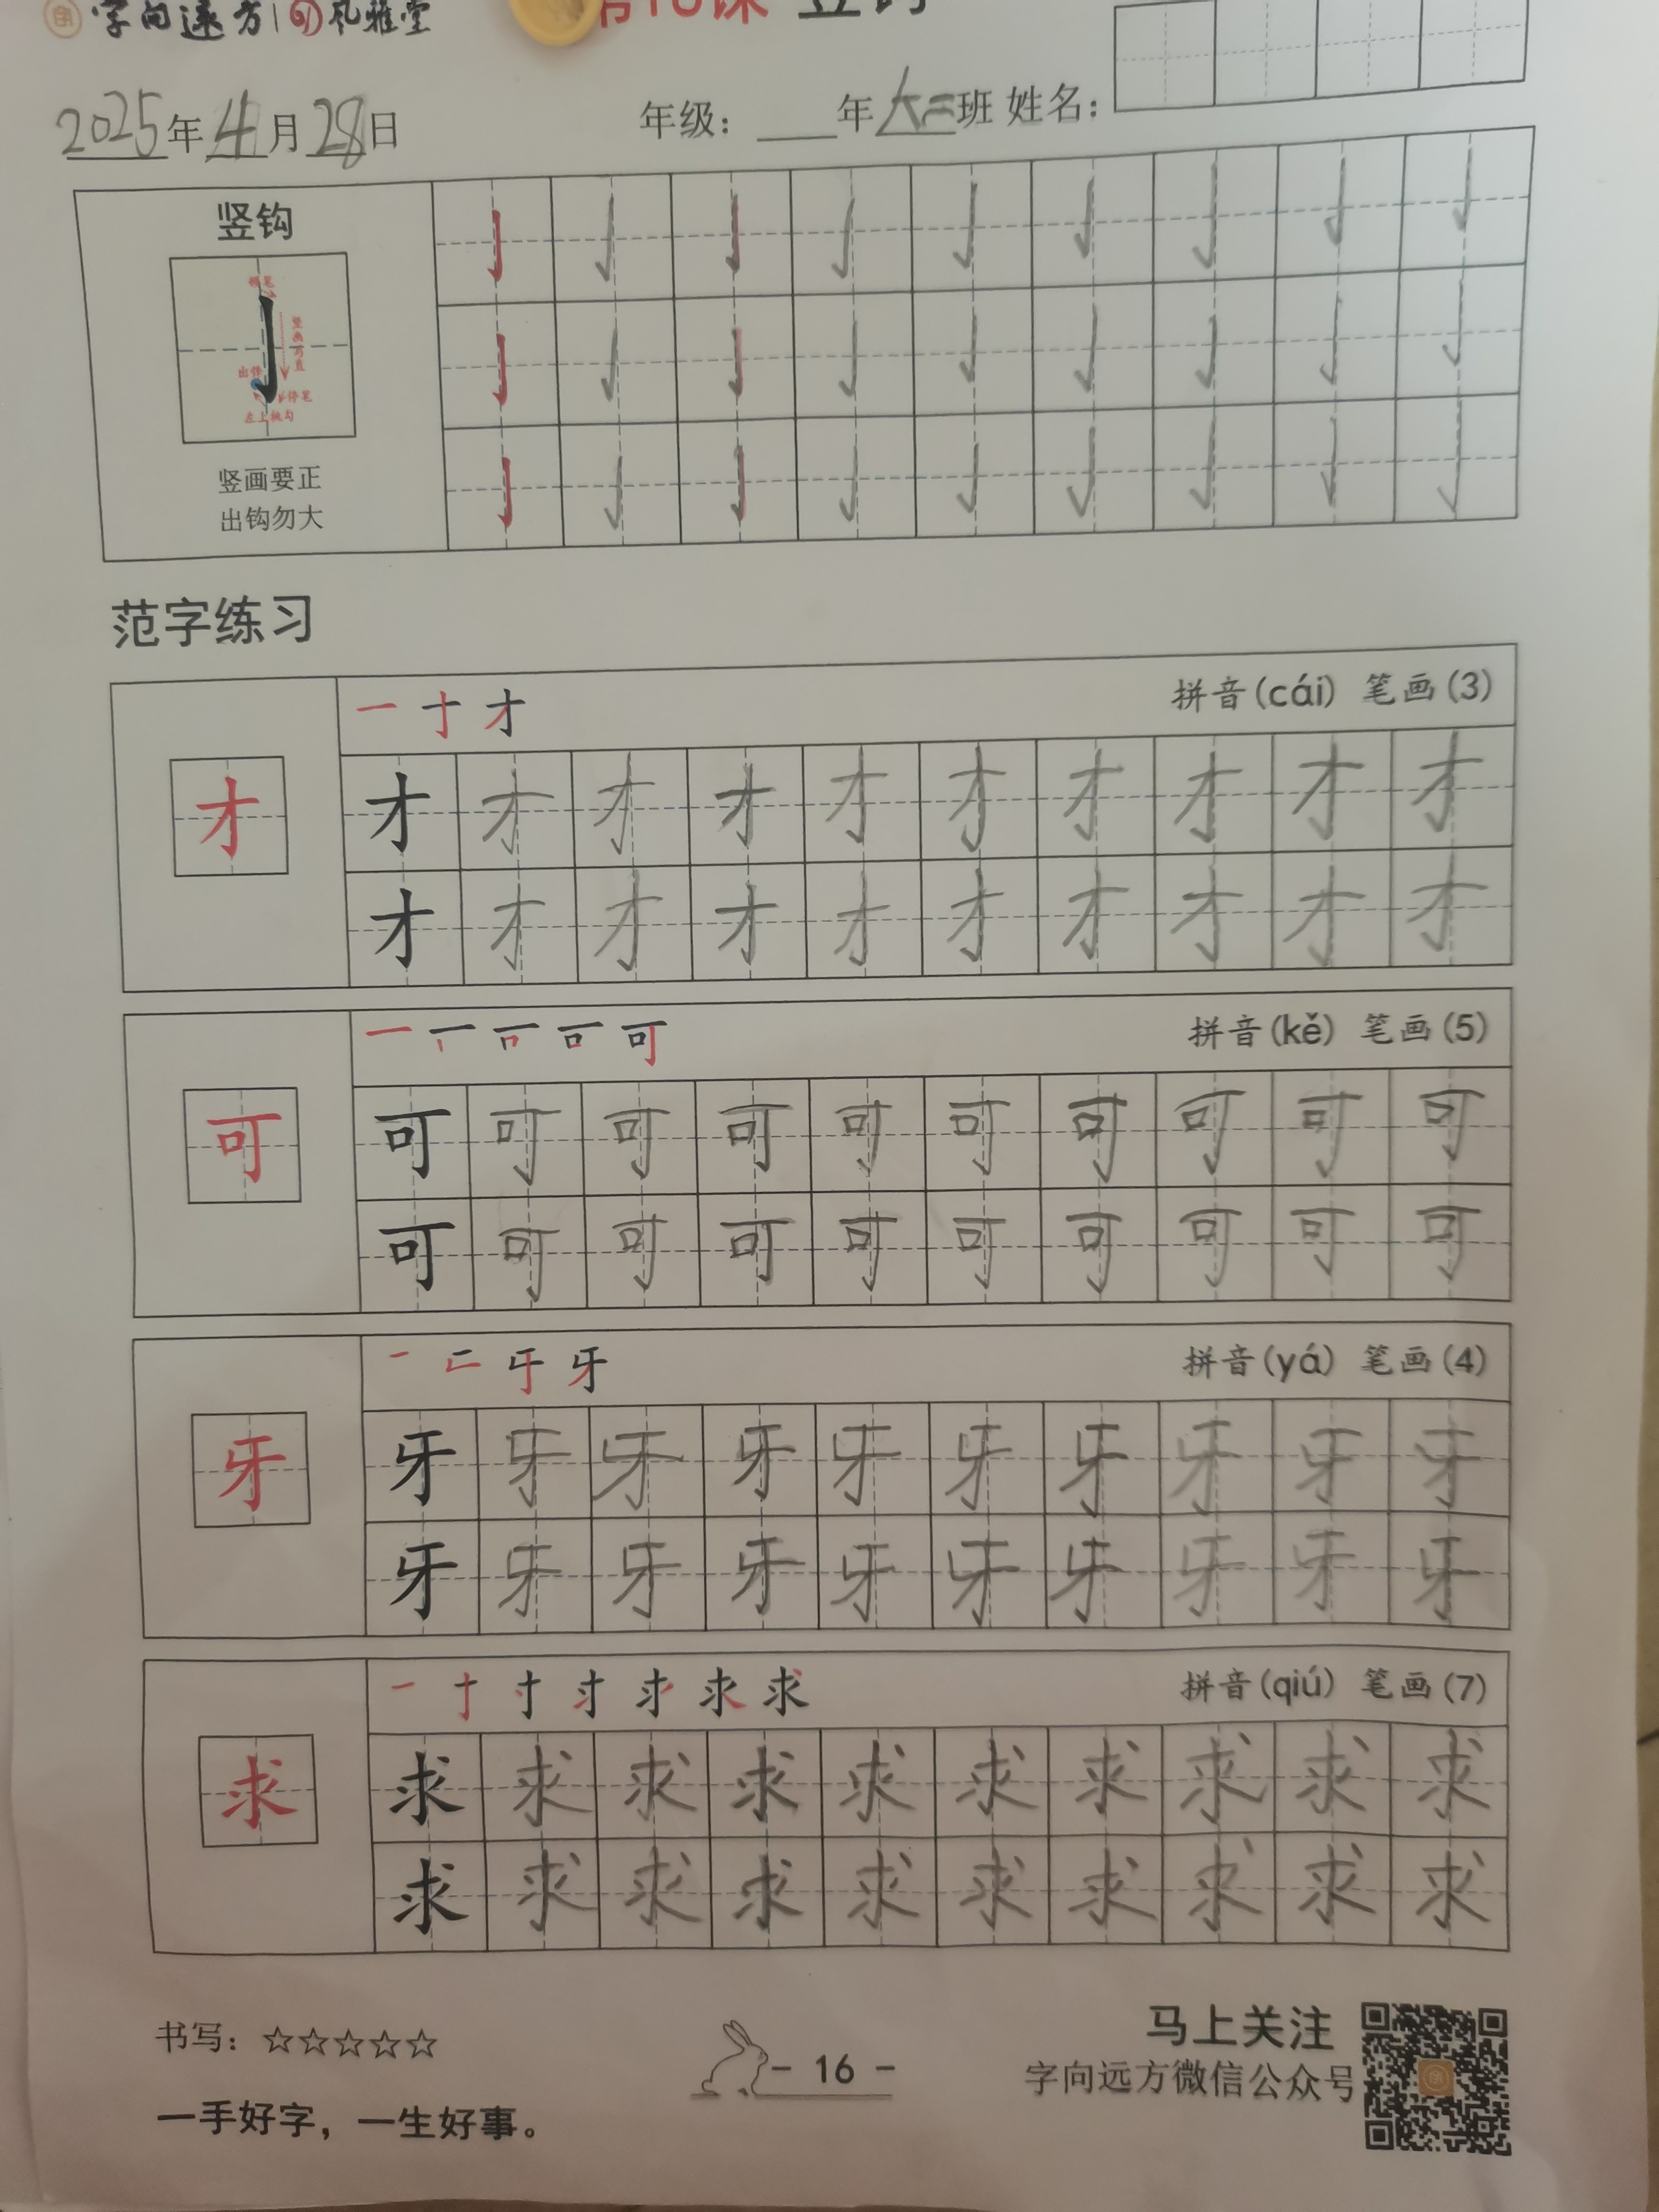 字向远方 礼雅堂
第16课 竖钩
2025年4月28日
年级：年大二班 姓名：
竖钩
竖画写直
出锋
停笔
左上挑勾
竖画要正
出钩勿大
范字练习
一 十 才
拼音(cái) 笔画(3)
才
才 才 才 才 才 才 才 才 才 才
才 才 才 才 才 才 才 才 才 才
可
拼音(kě) 笔画(5)
可
可 可 可 可 可 可 可 可 可 可
可 可 可 可 可 可 可 可 可 可
牙
拼音(yá) 笔画(4)
牙
牙 牙 牙 牙 牙 牙 牙 牙 牙 牙
牙 牙 牙 牙 牙 牙 牙 牙 牙 牙
求
拼音(qiú) 笔画(7)
求
求 求 求 求 求 求 求 求 求 求
求 求 求 求 求 求 求 求 求 求
书写：☆☆☆☆☆
- 16 -
马上关注
字向远方微信公众号
一手好字，一生好事。